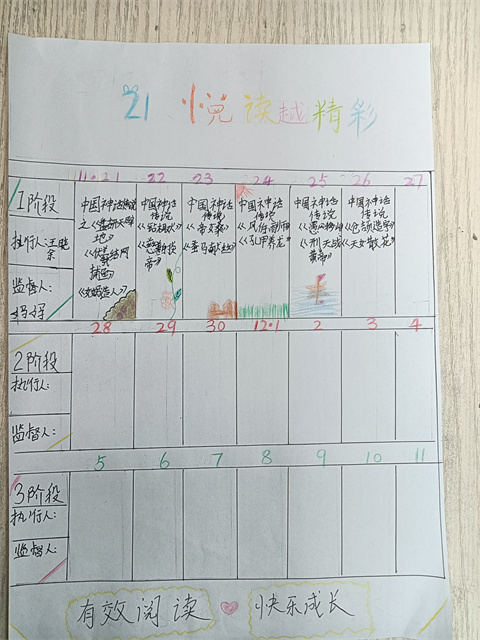 21 悦读越精彩
11.21 22 23 24 25 26 27
1阶段
执行人:王晓余
监督人:
妈妈
中国神话传说
之《盘古开天辟地》
《伏羲结网捕鱼》
《女娲造人》
中国神话
传说
帝》
中国神话
传说
中国神话
传说
《风伯雨师》
《孔甲养龙》
中国神话
传说
《刑天战黄帝》
中国神话
传说
《仓颉造字》
《天女散花》
28 29 30 12.1 2 3 4
2阶段
执行人:
监督人:
5 6 7 8 9 10 11
3阶段
执行人:
监督人:
有效阅读 快乐成长